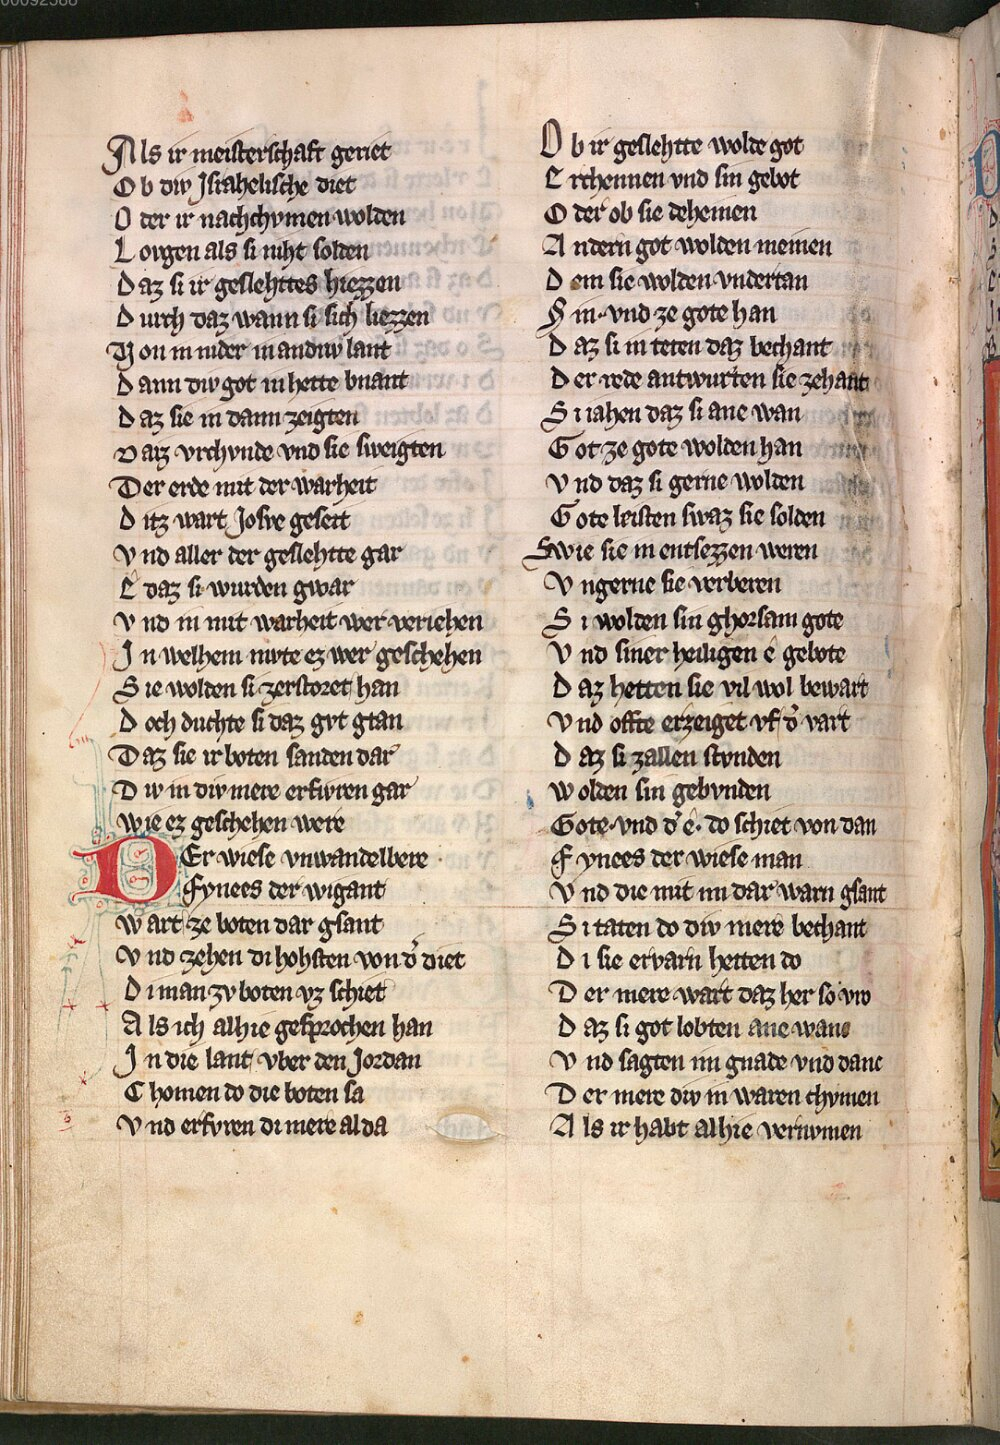 Als ir meisterschaft geriet
Ob diw Jsrahelische diet
Oder ir nachchvmen wolden
Lovgen als si niht solden
Daz si ir geslehttes hiezzen
Durch daz wann si sich liezzen
Von in nider in andriv lant
Dann diw got in hette bnant
Daz sie in dann zeigten
Daz vrchvnde vnd sie sweigten
Der erde mit der warheit
Ditz wart Josve geseit
Vnd aller der geslehtte gar
E daz si wurden gwar
Vnd in mit warheit wer veriehen
Jn welhem mvte ez wer geschehen
Sie wolden si zerstoret han
Doch duchte si daz gvt gtan
Daz sie ir boten sanden dar
Diw in diw mere erfwren gar
Wie ez geschehen were
DEr wiese vnwandelbere
Fynees der wigant
Wart ze boten dar gsant
Vnd zehen di hohsten von d̾ diet
Di man zv boten vz schiet
Als ich alhie gesprochen han
Jn die lant vber den Jordan
Chomen do die boten sa
Vnd erfvren di mere al da
Ob ir geslehtte wolde got
Erchennen vnd sin gebot
Oder ob sie deheinen
Andern got wolden meinen
Dem sie wolden vndertan
Sin vnd ze gote han
Daz si in teten daz bechant
Der rede antwurten sie zehant
Si iahen daz si ane wan
Got ze gote wolden han
Vnd daz si gerne wolden
Gote leisten swaz sie solden
Swie sie in entsezzen weren
Vngerne sie verberen
Si wolden sin ghorsam gote
Vnd siner heiligen e gebote
Daz hetten sie vil wol bewart
Vnd offte erzeiget vf d̾ vart
Daz si zallen stvnden
Wolden sin gebvnden
Gote vnd d̾ e. do schiet von dan
Fynees der wiese man
Vnd die mit im dar warn gsant
Si taten do diw mere bechant
Di sie ervarn hetten do
Der mere wart daz her so vro
Daz si got lobten ane wanc
Vnd sagten im gnade vnd danc
Der mere diw in waren chvmen
Als ir habt alhie vernvmen